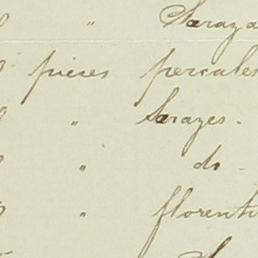 " Saraza
pièces percales
" Sarazes.
" do -
" florenti